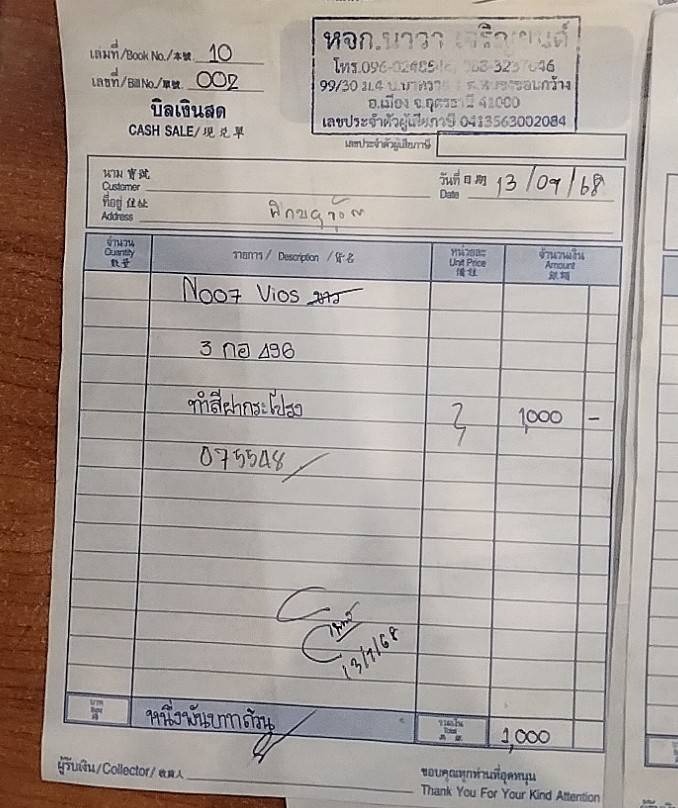 เล่มที่/Book No./本號 10
เลขที่/Bill No./單號 002
บิลเงินสด
CASH SALE/現兌單
หจก.นาวา เจริญยนต์
โทร.096-
99/30 ม.4
อ.เมือง จ.อุดรธานี 41000
เลขประจำตัวผู้เสียภาษี 0413563002084
เลขประจำตัวผู้เสียภาษี
นาม 寶號
Customer
วันที่ 日期 13/09/68
Date
ที่อยู่ 住址
Address
จำนวน
Quantity
數量
รายการ / Description / 貨名
หน่วยละ
Unit Price
價錢
จำนวนเงิน
Amount
銀額
N007 Vios ขาว
3 กอ 496
ทำสีฝากระโปรง 1,000 -
075548
13/9/68
บาท
หนึ่งพันบาทถ้วน
รวมเงิน
Total
1,000
ผู้รับเงิน/Collector/收員人
ขอบคุณทุกท่านที่อุดหนุน
Thank You For Your Kind Attention